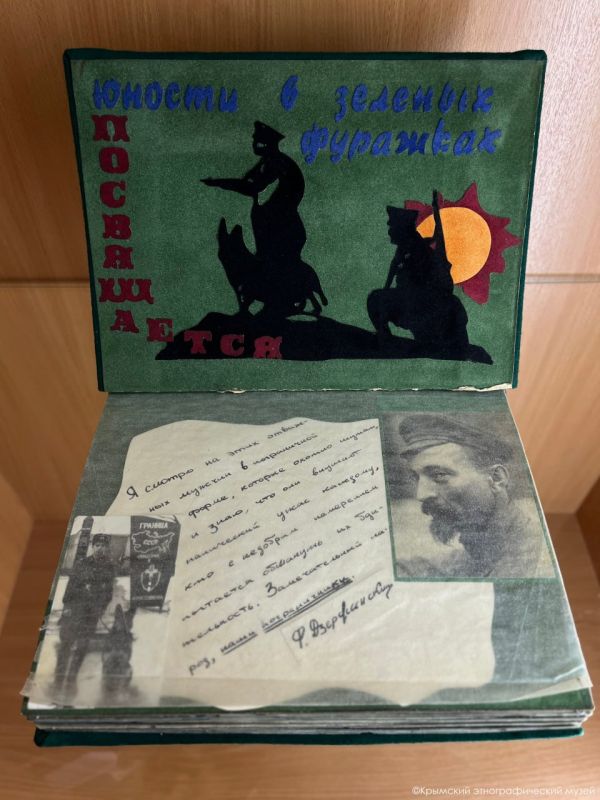 юности в зеленых
фуражках
ПОСВЯЩАЕТСЯ
Я смотрю на этих отваж-
ных мужчин в пограничной
форме, которые охотно шутят,
и знаю, что они внушают
панический ужас каждому,
кто с недобрым намерением
попытается обмануть их бди-
тельность. Замечательный на-
род, наши пограничники.
Ф. Дзержинский
ГРАНИЦА
СССР
©Крымский этнографический музей